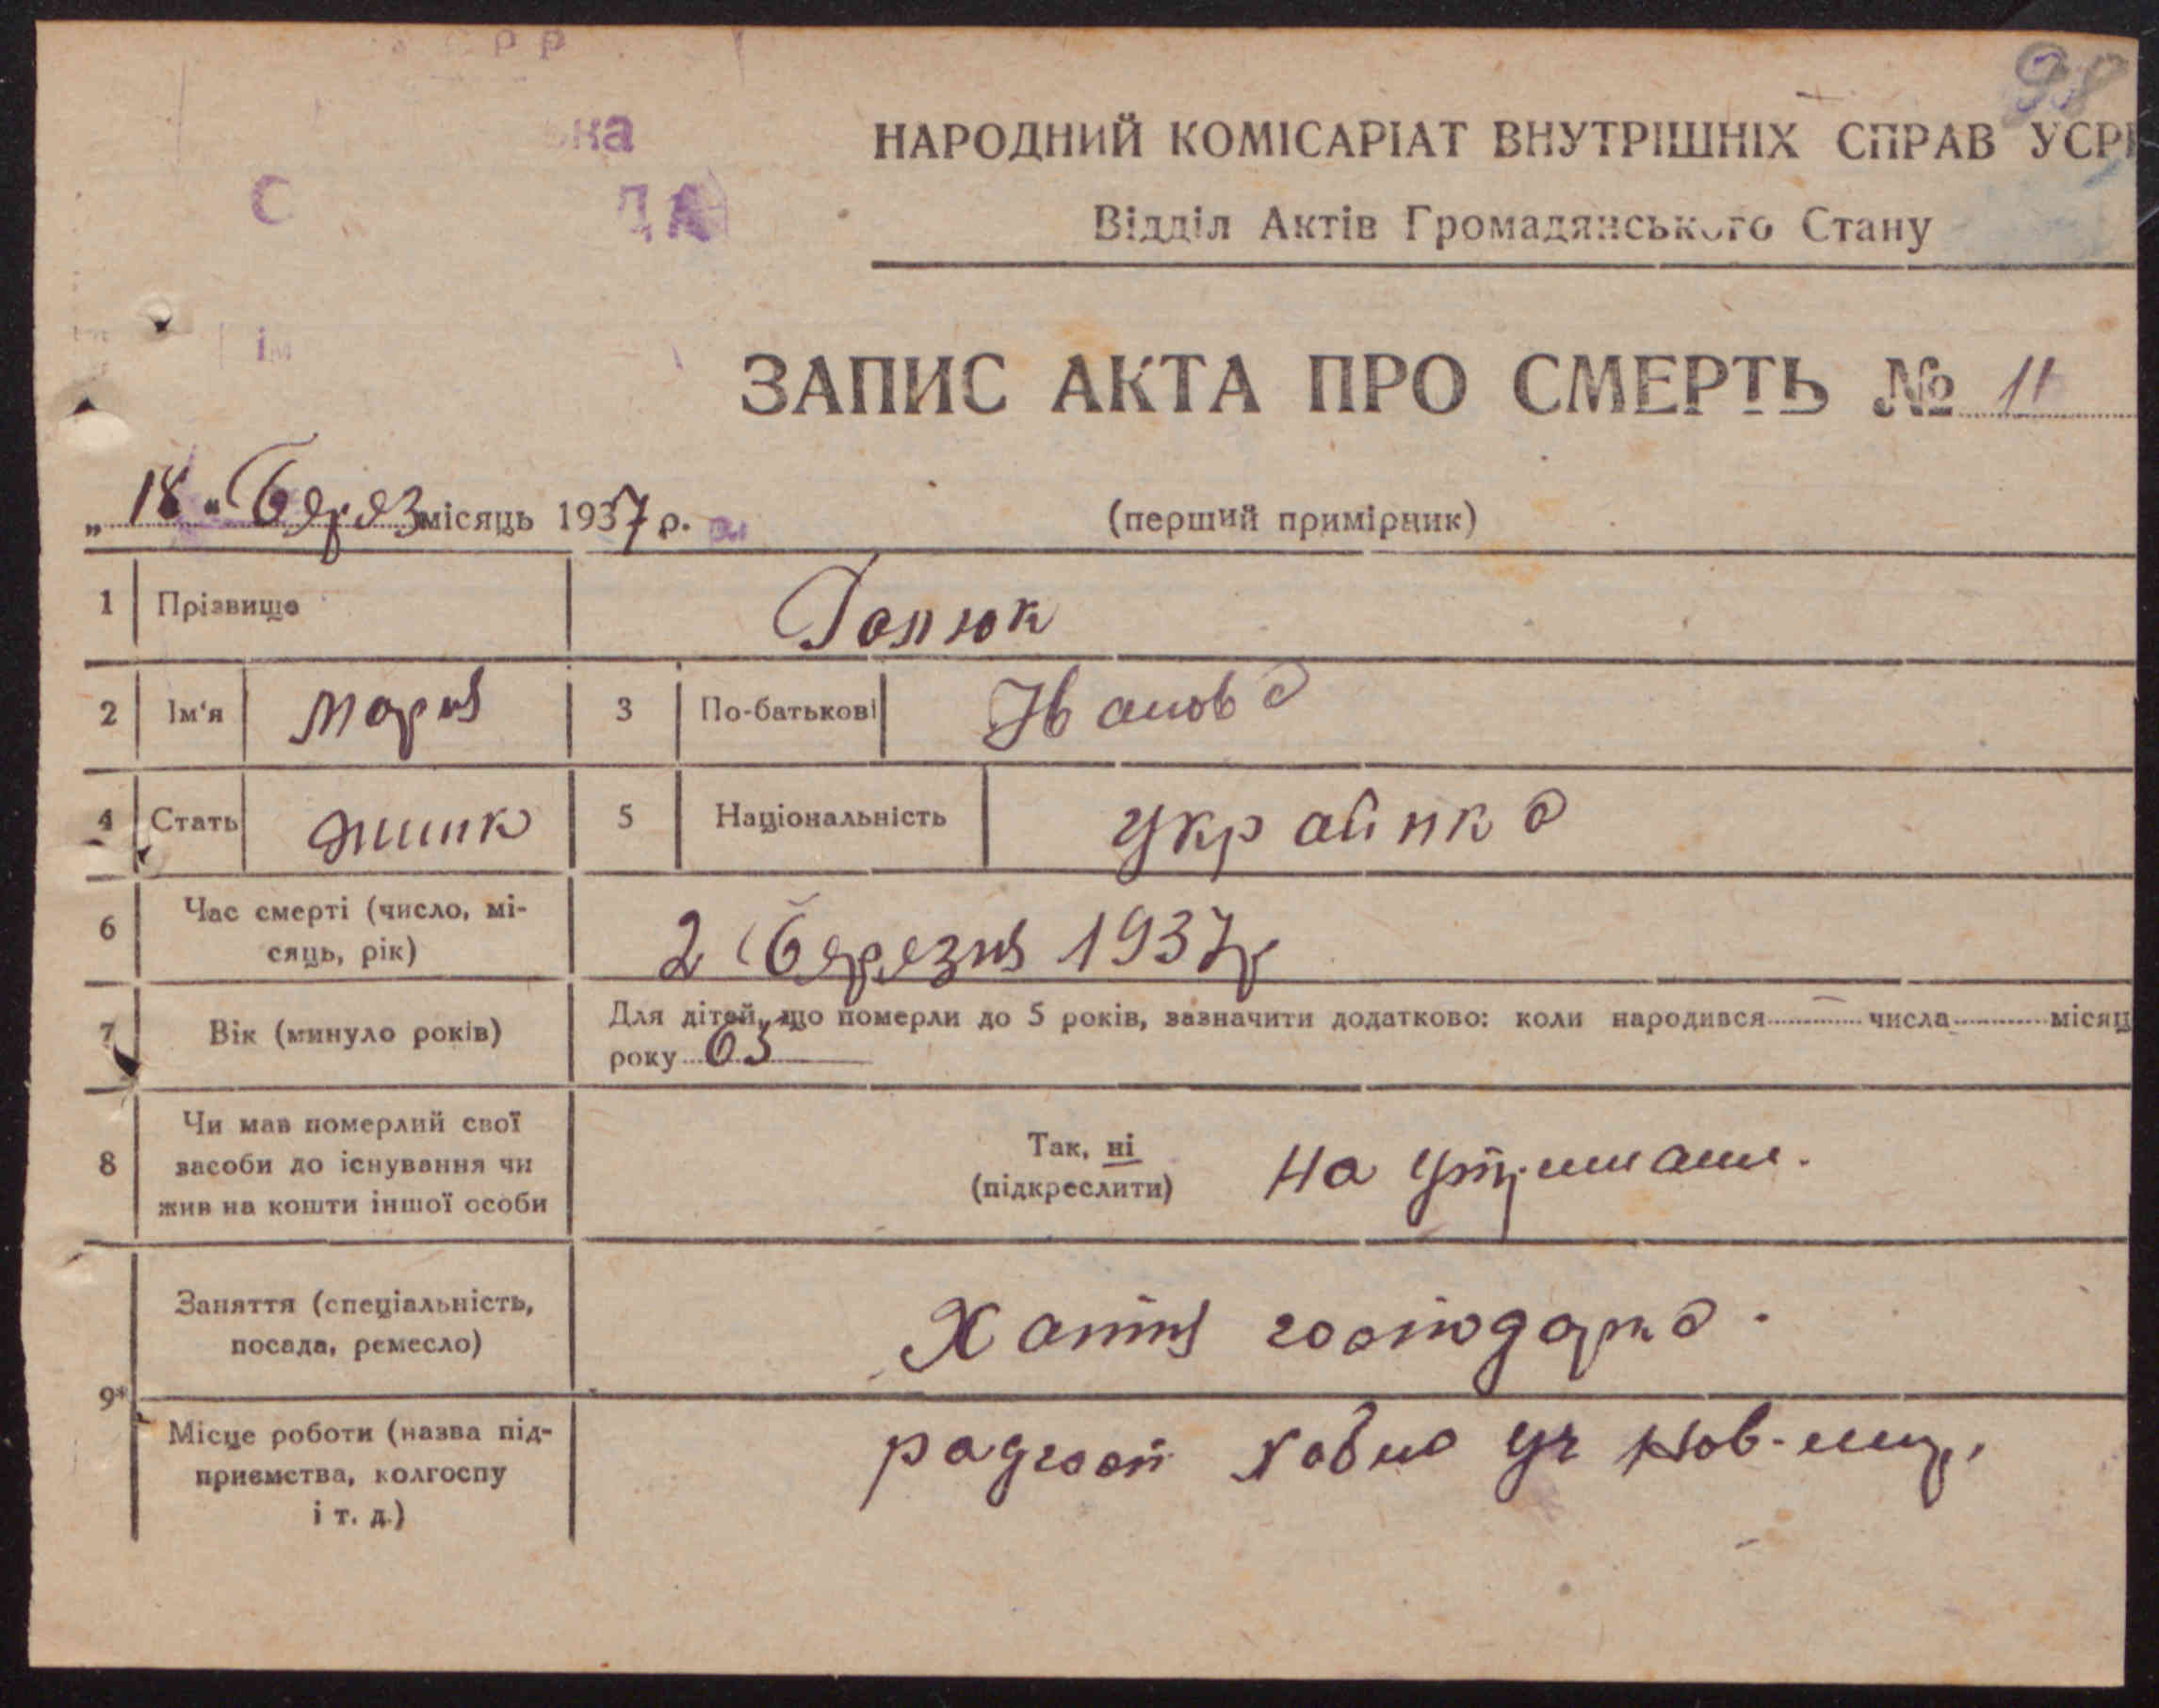 98
НАРОДНИЙ КОМІСАРІАТ ВНУТРІШНІХ СПРАВ УСРР
Відділ Актів Громадянського Стану
ЗАПИС АКТА ПРО СМЕРТЬ № 11
„18" Берез місяць 1937 р.
(перший примірник)
1 Прізвище
2 Ім'я Мария 3 По-батькові Іванова
4 Стать жинк 5 Національність Українка
6 Час смерті (число, мі-
сяць, рік) 2 Березня 1937р
7 Вік (минуло років) Для дітей, що померли до 5 років, зазначити додатково: коли народився числа місяц
року 65
8 Чи мав померлий свої
засоби до існування чи
жив на кошти іншої особи
Так, ні
(підкреслити) На
Заняття (спеціальність,
посада, ремесло) Хатня господарка.
9*
Місце роботи (назва під-
приємства, колгоспу
і т. д.)
радгосп